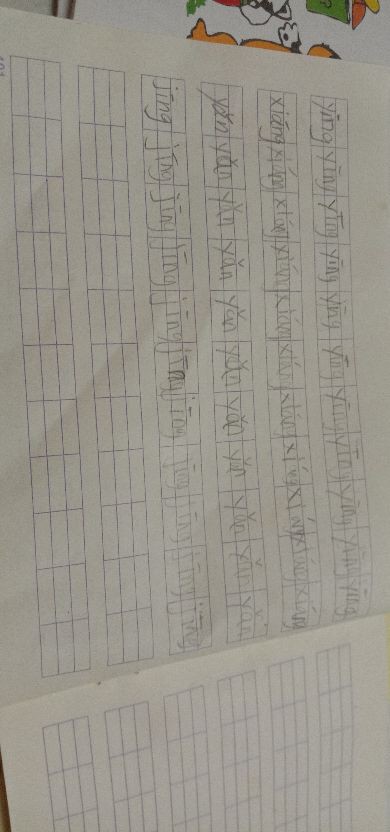 yīng yīng yīng yīng yīng yīng yīng yīng yīng yīng yīng
xiáng xiáng xiáng xiáng xiáng xiáng xiáng xiáng xiáng xiáng xiáng
yǎn yǎn yǎn yǎn yǎn yǎn yǎn yǎn yǎn yǎn yǎn
jīng jīng jīng jīng jīng jīng jīng jīng jīng jīng jīng